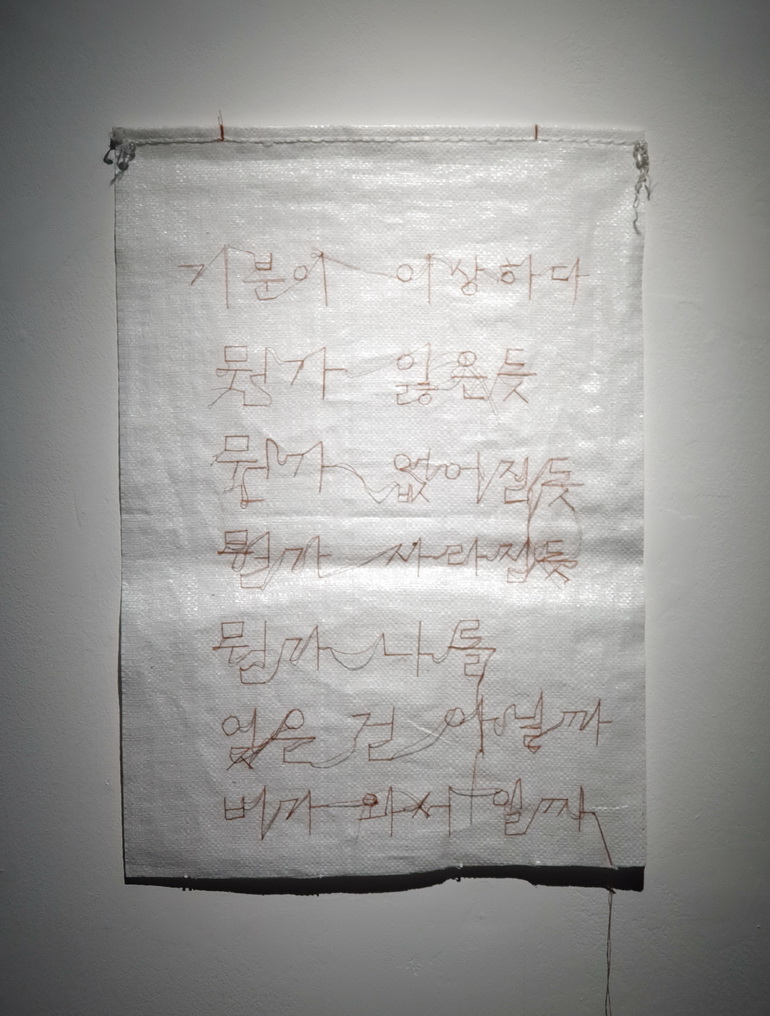 기분이 이상하다
뭔가 잃은듯
뭔가 없어질듯
뭔가 사라질듯
뭔가 나를
잊은 건 아닐까
비가 와서 일까